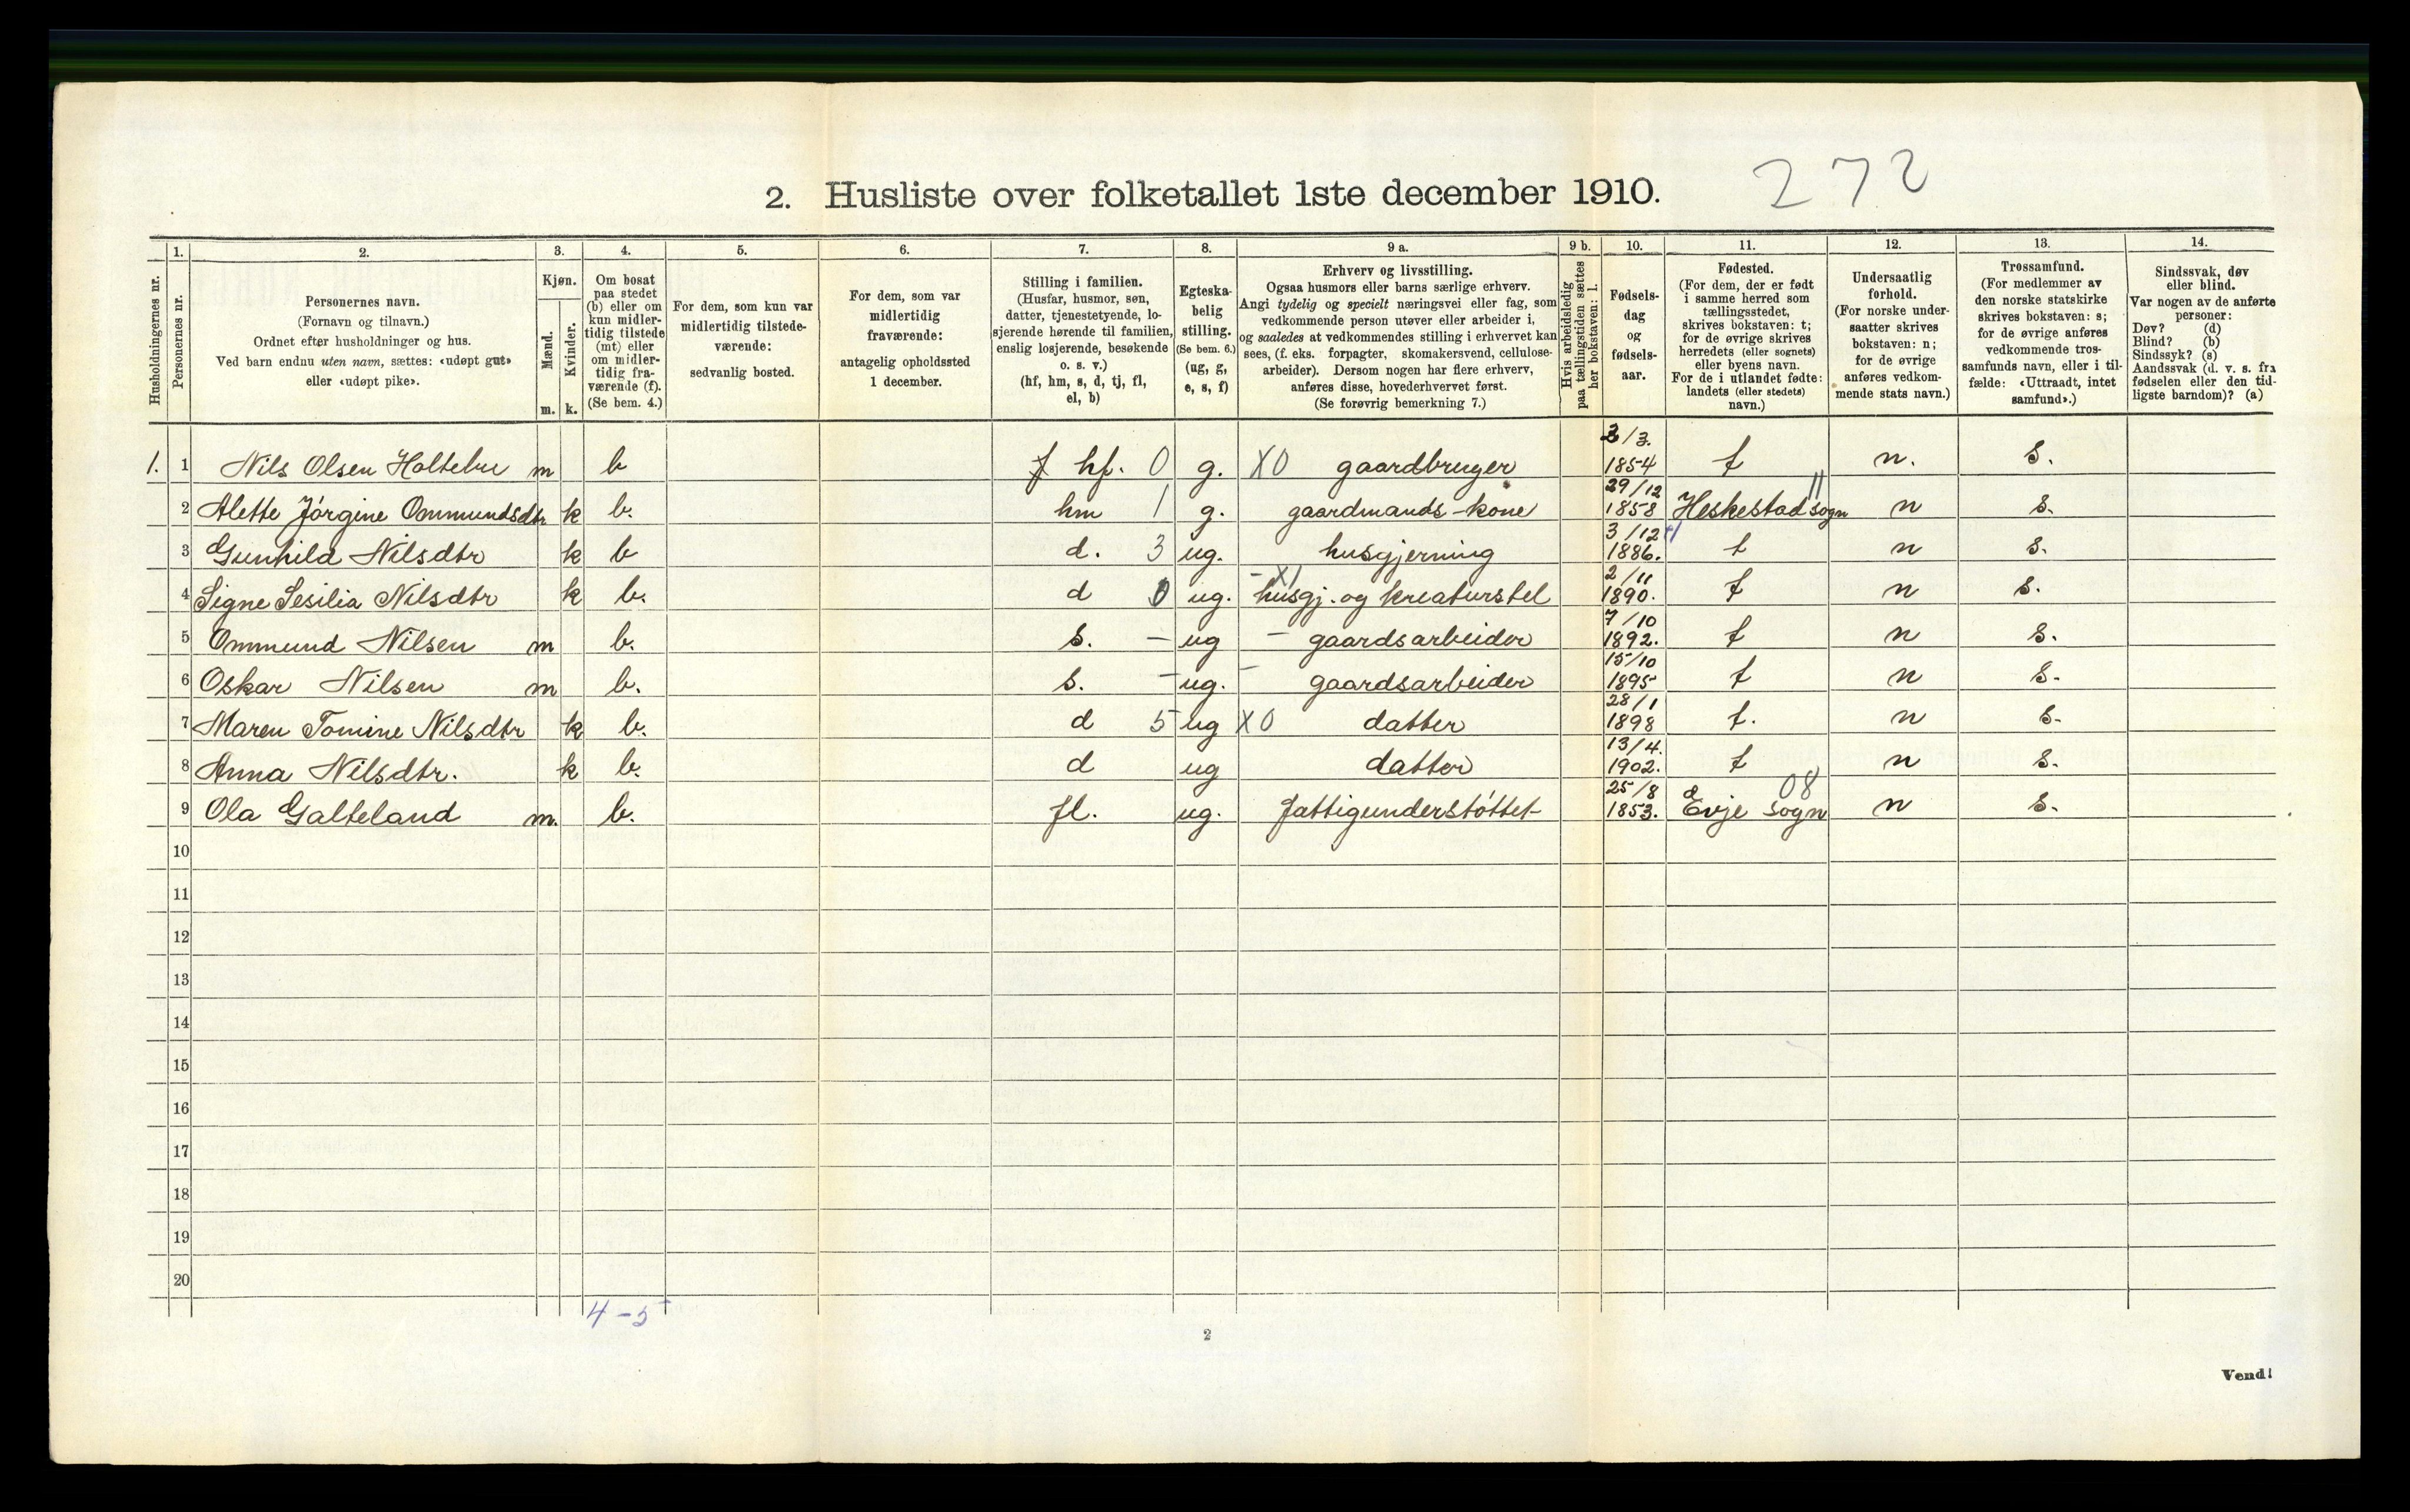 272
2. Husliste over folketallet 1ste december 1910.
Husholdningernes nr.
1.
Personernes nr.
2.
Personernes navn.
(Fornavn og tilnavn.)
Ordnet efter husholdninger og hus.
Ved barn endnu uten navn, sættes: «udøpt gut»
eller «udøpt pike».
3.
Kjøn.
Mænd.
Kvinder.
m. k.
4.
Om bosat
paa stedet
(b) eller om
kun midler-
tidig tilstede
(mt) eller
om midler-
tidig fra-
værende (f).
(Se bem. 4.)
5.
For dem, som kun var
midlertidig tilstede-
værende:
sedvanlig bosted.
6.
For dem, som var
midlertidig
fraværende:
antagelig opholdssted
1 december.
7.
Stilling i familien.
(Husfar, husmor, søn,
datter, tjenestetyende, lo-
sjerende hørende til familien,
enslig losjerende, besøkende
o. s. v.)
(hf, hm, s, d, tj, fl,
el, b)
8.
Egteska-
belig
stilling.
(Se bem. 6.)
(ug, g,
e, s, f)
9 a.
Erhverv og livsstilling.
Ogsaa husmors eller barns særlige erhverv.
Angi tydelig og specielt næringsvei eller fag, som
vedkommende person utøver eller arbeider i,
og saaledes at vedkommendes stilling i erhvervet kan
sees, (f. eks. forpagter, skomakersvend, cellulose-
arbeider). Dersom nogen har flere erhverv,
anføres disse, hovederhvervet først.
(Se forøvrig bemerkning 7.)
9 b.
Hvis arbeidsledig
paa tællingstiden sættes
her bokstaven: l.
10.
Fødsels-
dag
og
fødsels-
aar.
11.
Fødested.
(For dem, der er født
i samme herred som
tællingsstedet,
skrives bokstaven: t;
for de øvrige skrives
herredets (eller sognets)
eller byens navn.
For de i utlandet fødte:
landets (eller stedets)
navn.)
12.
Undersaatlig
forhold.
(For norske under-
saatter skrives
bokstaven: n;
for de øvrige
anføres vedkom-
mende stats navn.)
13.
Trossamfund.
(For medlemmer av
den norske statskirke
skrives bokstaven: s;
for de øvrige anføres
vedkommende tros-
samfunds navn, eller i til-
fælde: «Uttraadt, intet
samfund».)
14.
Sindssvak, døv
eller blind.
Var nogen av de anførte
personer:
Døv? (d)
Blind? (b)
Sindssyk? (s)
Aandssvak (d. v. s. fra
fødselen eller den tid-
ligste barndom)? (a)
1. 1 Nils Olsen Holtebu m b hf. 0 g. X0 gaardbruger 3/3. 1854 t n. s.
2 Alette Jørgine Ommundsdtr k b. hm 1 g. gaardmands-kone 29/12 1858 Heskestad sogn 11 n s.
3 Gunhild Nilsdtr k b d. 3 ug. husgjerning 3/12 1886. t n s.
4 Signe Sesilia Nilsdtr k b. d 0 ug. - X1 husgj. og kreaturstel 2/11 1890. t n s.
5 Ommund Nilsen m b. s. - ug - gaardsarbeider 7/10 1892. t n s.
6 Oskar Nilsen m b. s. - ug. - gaardsarbeider 15/10 1895 t n s.
7 Maren Tomine Nilsdtr k b. d 5 ug X0 datter 28/1 1898 t. n s.
8 Anna Nilsdtr. k b. d ug datter 13/4. 1902. t n s.
9 Ola Galteland m. b. fl. ug. fattigunderstøttet 25/8 1853. Evje sogn 08 n s.
10
11
12
13
14
15
16
17
18
19
20
4-5
2
Vend!